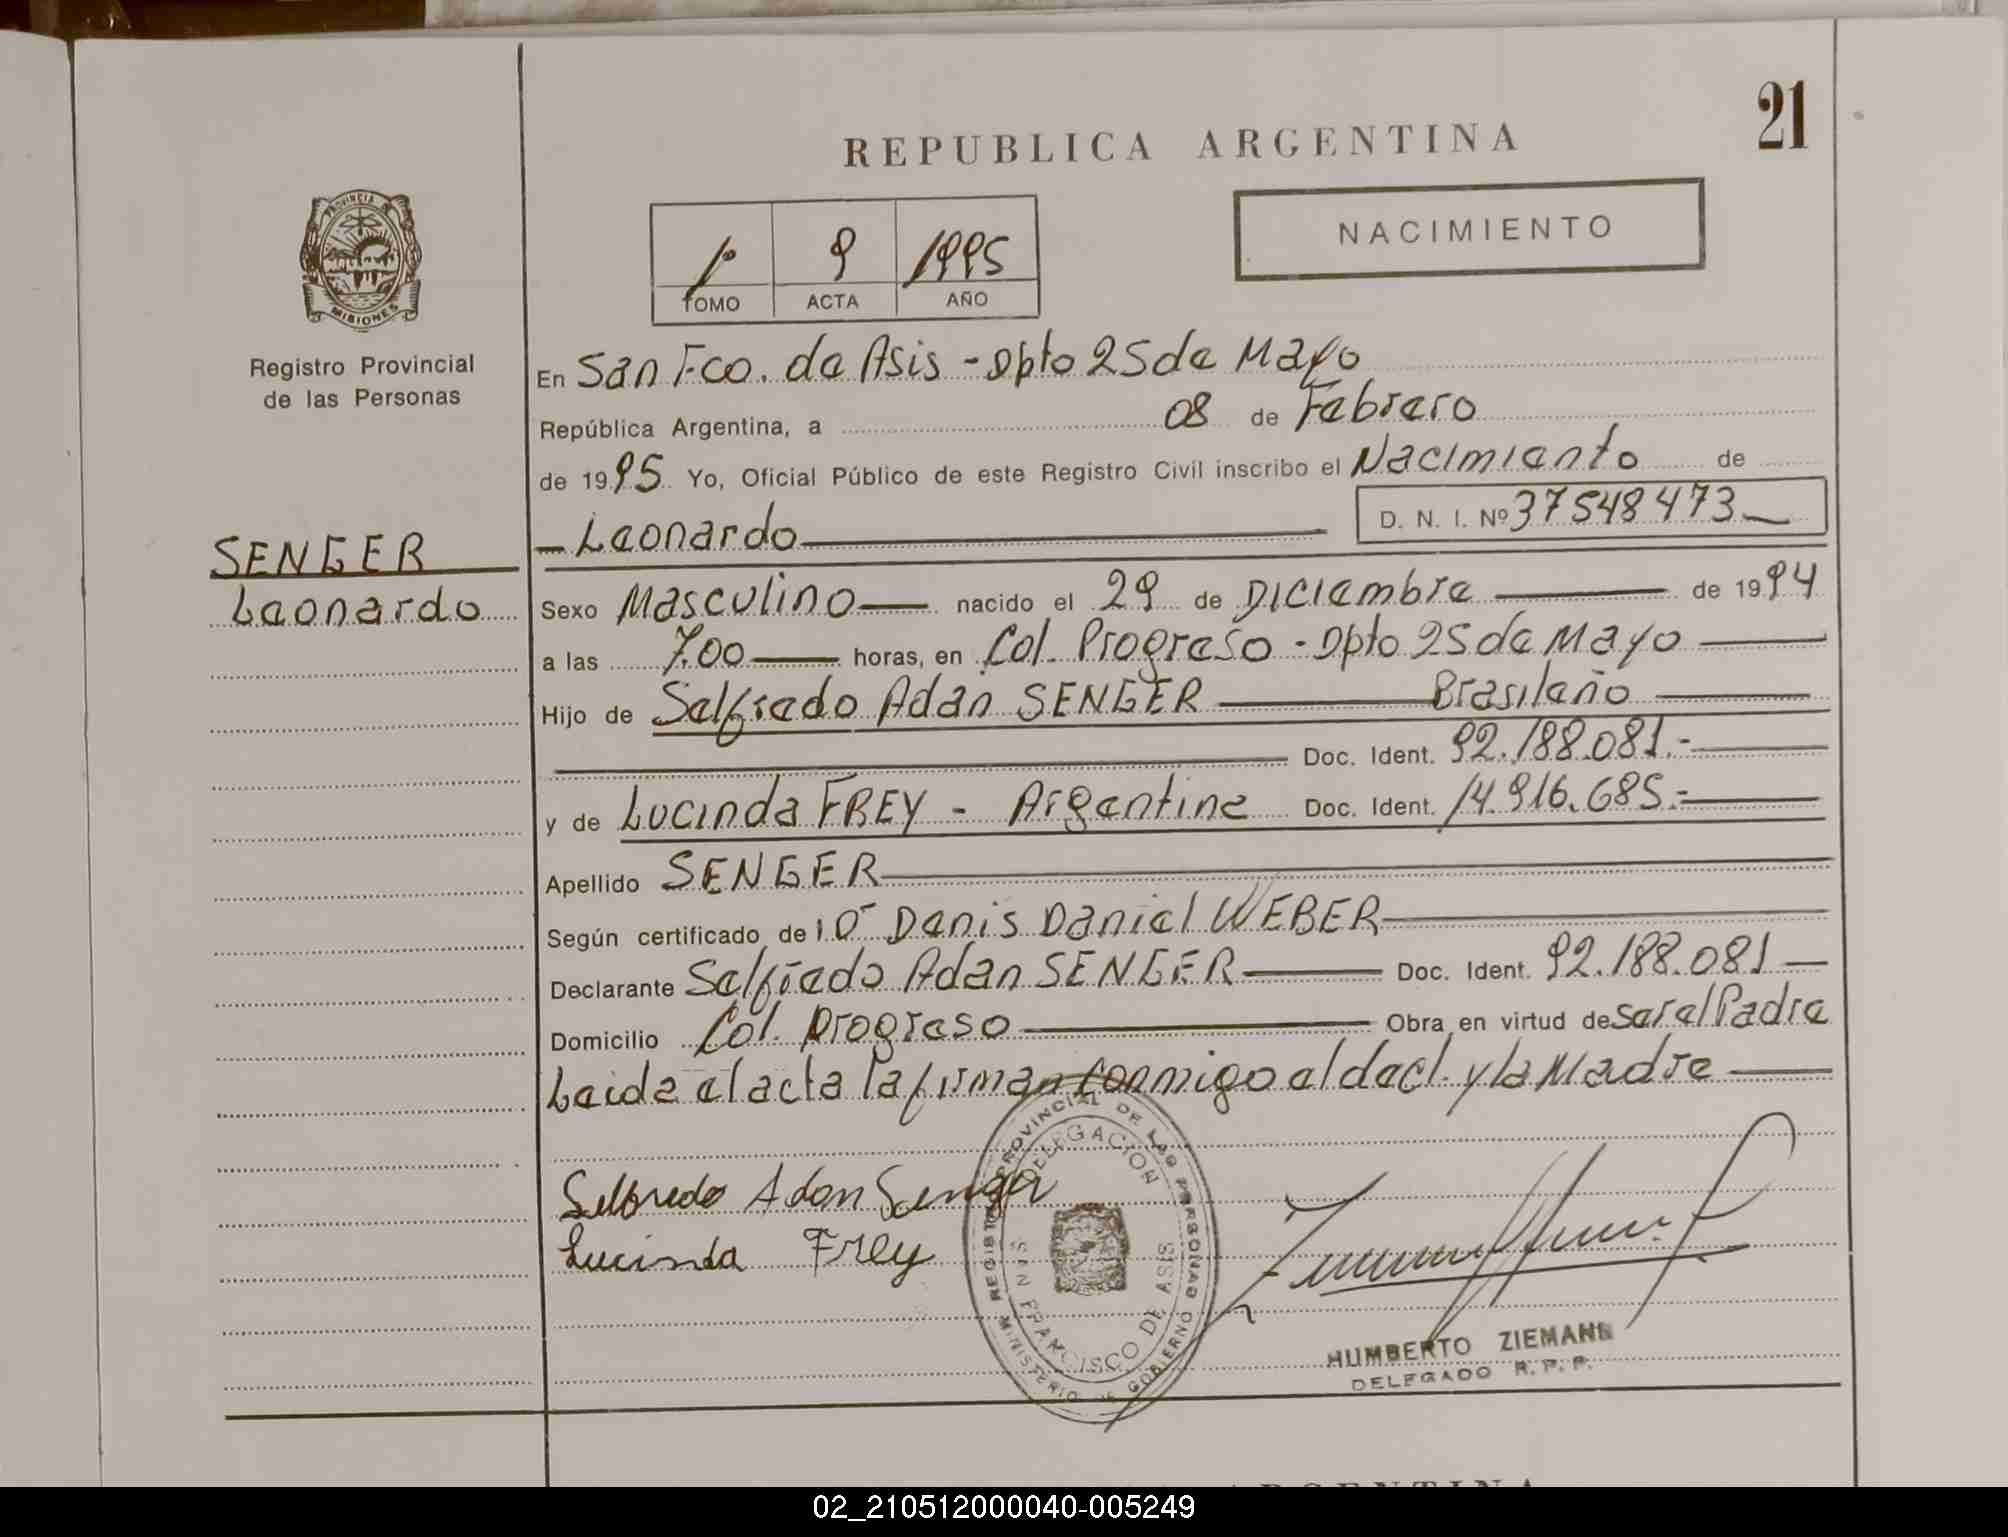 21
REPUBLICA ARGENTINA
NACIMIENTO
1º 9 1995
TOMO ACTA AÑO
PROVINCIA DE
MISIONES
Registro Provincial
de las Personas
En San Fco. de Asis - Dpto 25 de Mayo
República Argentina, a 08 de Febrero
de 1995 Yo, Oficial Público de este Registro Civil inscribo el Nacimiento de
- Leonardo D. N. I. Nº 37548473
SENGER
Leonardo
Sexo Masculino nacido el 29 de Diciembre de 1994
a las 7.00 horas, en Col. Progreso - Dpto 25 de Mayo
Hijo de Selfredo Adan SENGER Brasileño
Doc. Ident. 92.188.081.-
y de Lucinda FREY - Argentina Doc. Ident. 14.916.685.-
Apellido SENGER
Según certificado de Denis Daniel WEBER
Declarante Selfredo Adan SENGER Doc. Ident. 92.188.081
Domicilio Col. Progreso Obra en virtud de ser el Padre
Leida el acta la firman conmigo el decl. y la Madre
Selfredo Adan Senger
Lucinda Frey
REGISTRO PROVINCIAL DE LAS PERSONAS
DELEGACION
SAN FRANCISCO DE ASIS
MINISTERIO DE GOBIERNO
HUMBERTO ZIEMANN
DELEGADO R. P. P.
ARGENTINA
02_210512000040-005249